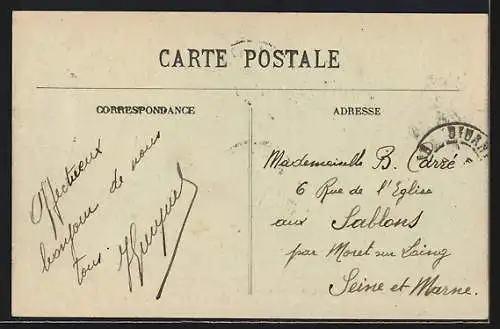 CARTE POSTALE
CORRESPONDANCE
Affectueux
bonjour de nous
tous.
ADRESSE
Mademoiselle B. Carré
6 Rue de l'Eglise
aux Sablons
par Moret sur Loing
Seine et Marne.